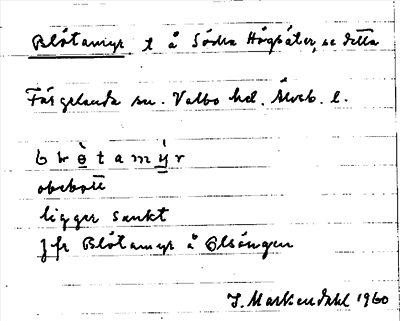 Blötamyr, t å Södra Högsäter, se detta
Färgelanda sn. Valbo hd. Älvsb. l.
b w ø̀ t a m ý r
obebott
ligger sankt
jfr Blötamyr å Olsängen
J. Markendahl 1960